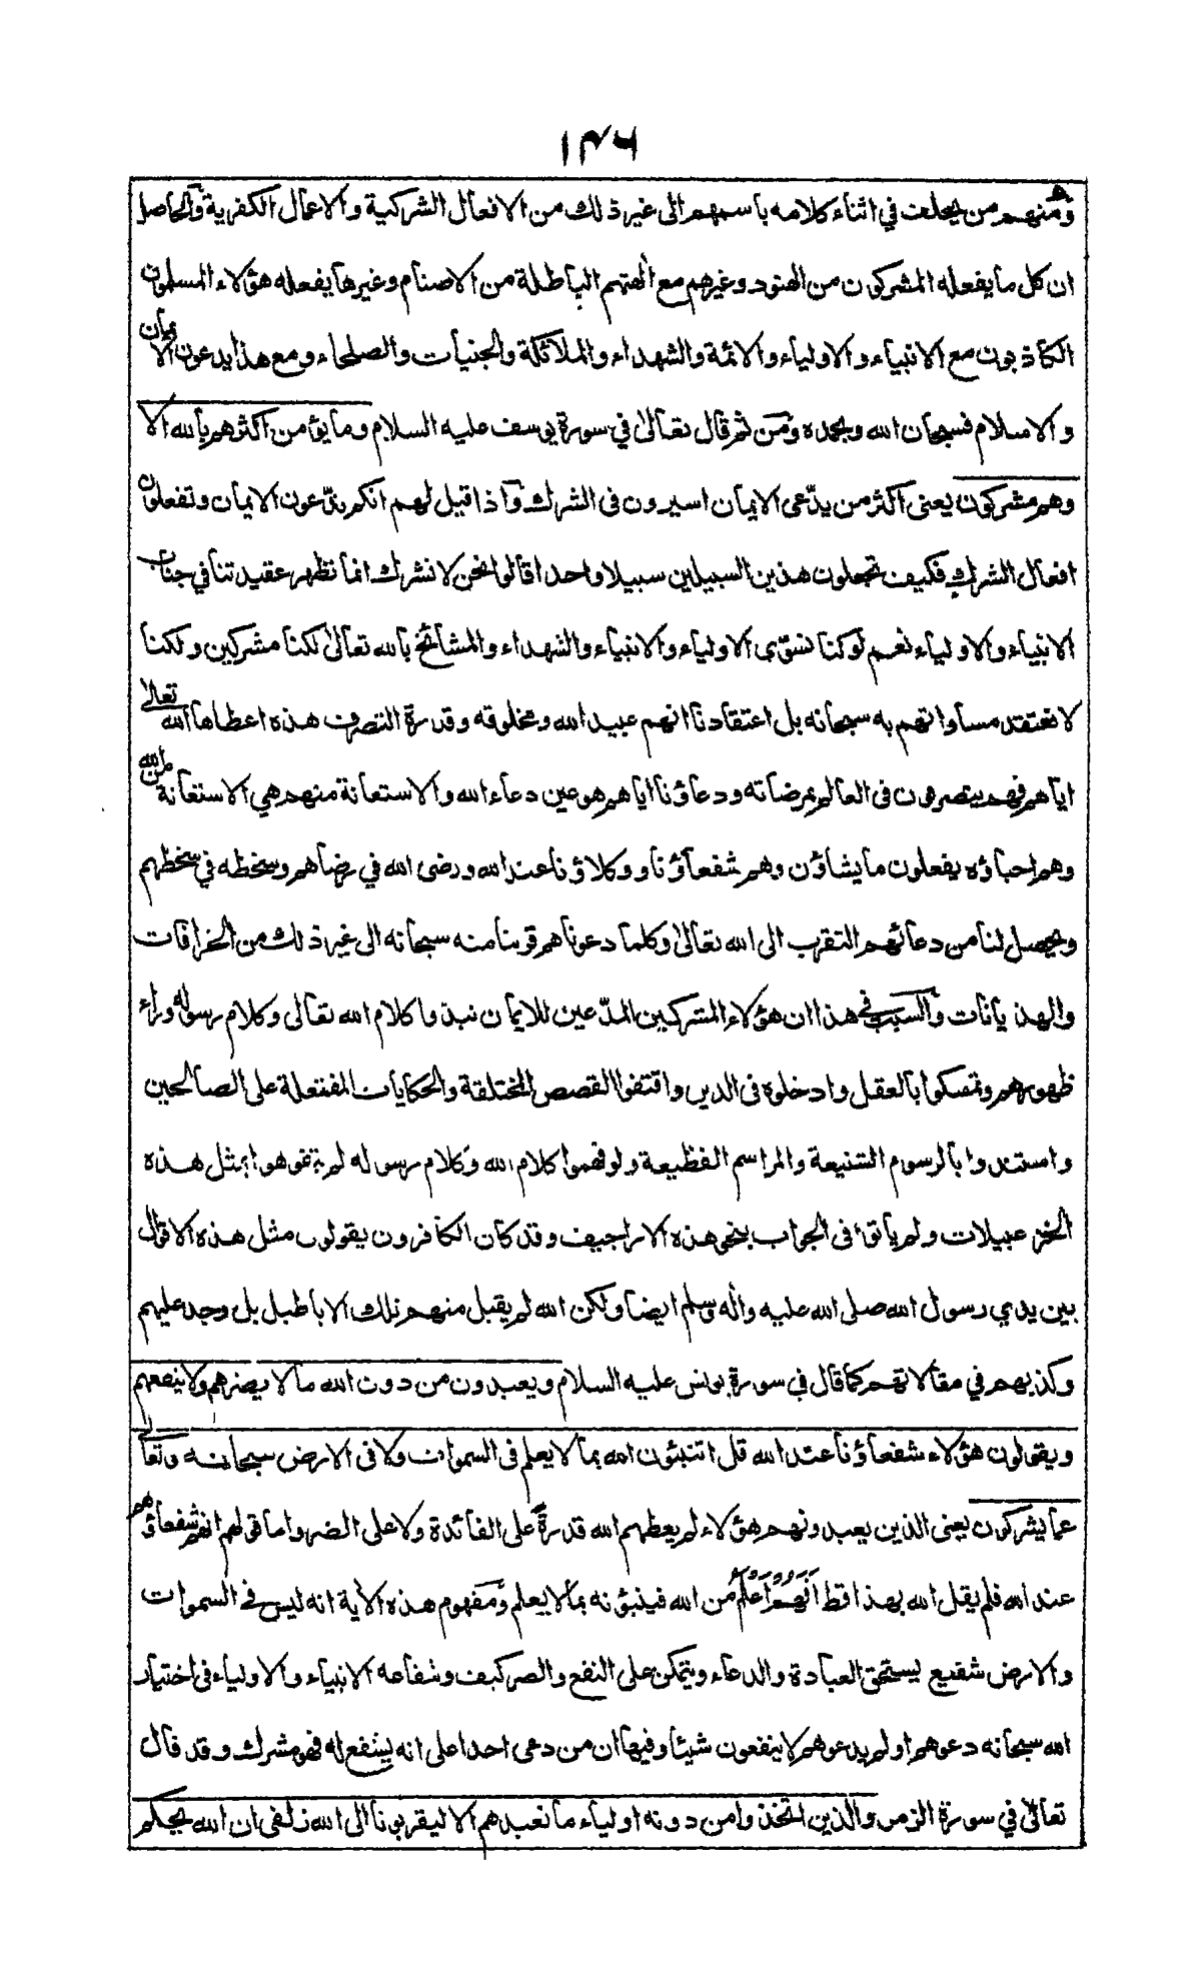 ١٣٦
ومنهم من يحلف في اثناء كلامه باسمهم الى غير ذلك من الافعال الشركية والاعمال الكفرية والحاصل
ان كل ما يفعله المشركون من الهنود وغيرهم مع الهتهم الباطلة من الاصنام وغيرها يفعله هؤلاء المسلمون
الكاذبون مع الانبياء والاولياء والائمة والشهداء والملائكة والجنيات والصلحاء ومع هذا يدعون الايمان
والاسلام فسبحان الله وبحمده ومن ثم قال تعالى في سورة يوسف عليه السلام وما يؤمن اكثرهم بالله الا
وهم مشركون يعنى اكثر من يدّعى الايمان اسيرون فى الشرك واذا قيل لهم انكم تدّعون الايمان وتفعلون
افعال الشرك فكيف تجعلون هذين السبيلين سبيلا واحدا قالوا نحن لا نشرك انما نظهر عقيدتنا في جناب
الانبياء والاولياء نعم لو كنا نسوّى الاولياء والانبياء والشهداء والمشائخ بالله تعالى لكنا مشركين ولكنا
لا نعتقد مساواتهم به سبحانه بل اعتقادنا انهم عبيد الله ومخلوقه وقدرة التصرف هذه اعطاها الله تعالى
اياهم فهم يتصرفون فى العالم بمرضاته ودعاؤنا اياهم هو عين دعاء الله والاستعانة منهم هي الاستعانة من الله
وهم احباؤه يفعلون ما يشاؤن وهم شفعاؤنا ووكلاؤنا عند الله ورضى الله في رضاهم وسخطه في سخطهم
ويحصل لنا من دعائهم التقرب الى الله تعالى وكلما دعوناهم قربنا منه سبحانه الى غير ذلك من الخرافات
والهذيانات والسبب في هذا ان هؤلاء المشركين المدّعين للايمان نبذوا كلام الله تعالى وكلام رسوله وراء
ظهورهم وتمسكوا بالعقل وادخلوه فى الدين واقتفوا القصص المختلقة والحكايات المفتعلة على الصالحين
واستندوا بالرسوم الشنيعة والمراسم الفظيعة ولو فهموا كلام الله وكلام رسوله لم يتفوهوا بمثل هذه
الخزعبيلات ولم ياتوا فى الجواب بنحو هذه الاراجيف وقد كان الكافرون يقولون مثل هذه الاقوال
بين يدي رسول الله صلى الله عليه واله وسلم ايضا ولكن الله لم يقبل منهم تلك الاباطيل بل وجد عليهم
وكذبهم في مقالاتهم كما قال في سورة يونس عليه السلام ويعبدون من دون الله ما لا يضرهم ولا ينفعهم
ويقولون هؤلاء شفعاؤنا عند الله قل اتنبئون الله بما لا يعلم فى السموات ولا فى الارض سبحانه وتعالى
عما يشركون يعنى الذين يعبدونهم هؤلاء لم يعطهم الله قدرة على الفائدة ولا على الضر واما قولهم انهم شفعاؤهم
عند الله فلم يقل الله بهذا قط أنهم اعلم من الله فينبؤنه بما لا يعلم ومفهوم هذه الاية انه ليس فى السموات
والارض شفيع يستحق العبادة والدعاء ويتمكن على النفع والضر كيف وشفاعة الانبياء والاولياء فى اختيار
الله سبحانه دعوهم او لم يدعوهم لا ينفعون شيئا وفيها ان من دعى احدا على انه يشفع له فهو مشرك وقد قال
تعالى في سورة الزمر والذين اتخذوا من دونه اولياء ما نعبدهم الا ليقربونا الى الله زلفى ان الله يحكم